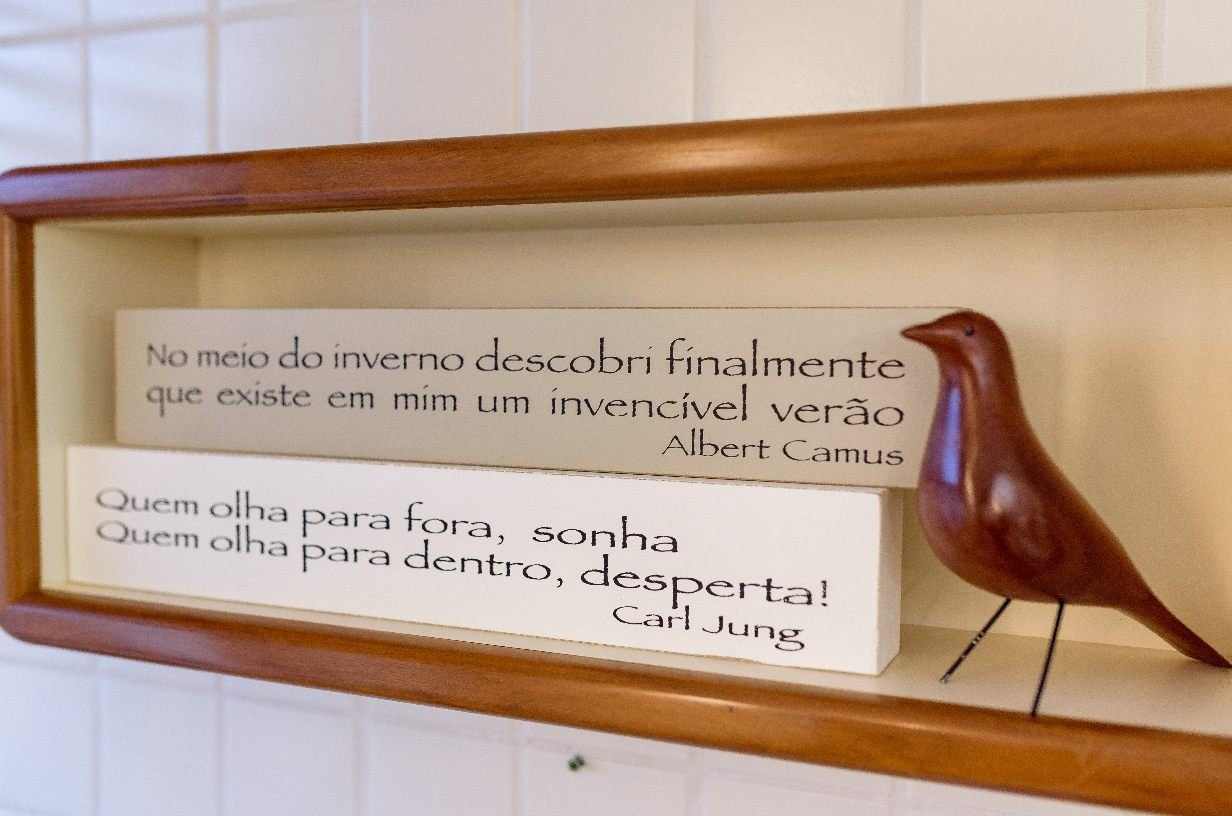 No meio do inverno descobri finalmente
que existe em mim um invencível verão
Albert Camus
Quem olha para fora, sonha
Quem olha para dentro, desperta!
Carl Jung